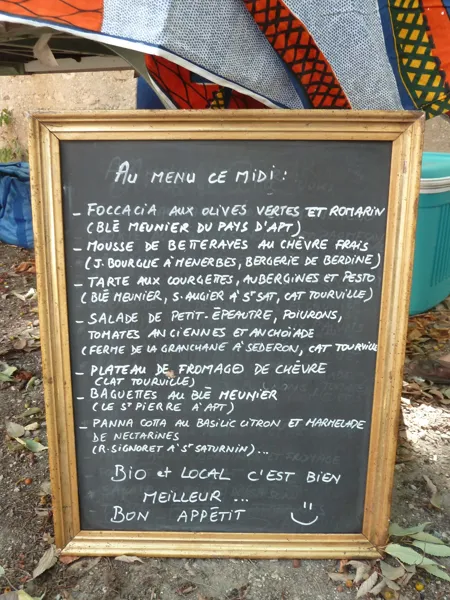 AU MENU CE MIDI :
- FOCCACIA AUX OLIVES VERTES ET ROMARIN
(BLÉ MEUNIER DU PAYS D'APT)
- MOUSSE DE BETTERAVES AU CHÈVRE FRAIS
(J. BOURGUE À MENERBES, BERGERIE DE BERDINE)
- TARTE AUX COURGETTES, AUBERGINES ET PESTO
(BLÉ MEUNIER, S. AUGIER À ST SAT, CAT TOURVILLE)
- SALADE DE PETIT-ÉPEAUTRE, POIVRONS,
TOMATES ANCIENNES ET ANCHOÏADE
(FERME DE LA GRANCHANE À SEDERON, CAT TOURVILLE
- PLATEAU DE FROMAGO DE CHÈVRE
(CAT TOURVILLE)
- BAGUETTES AU BLÉ MEUNIER
(LE ST PIERRE À APT)
- PANNA COTTA AU BASILIC CITRON ET MARMELADE
DE NECTARINES
(R. SIGNORET À ST SATURNIN)...
BIO et LOCAL C'EST BIEN
MEILLEUR ...
BON APPÉTIT